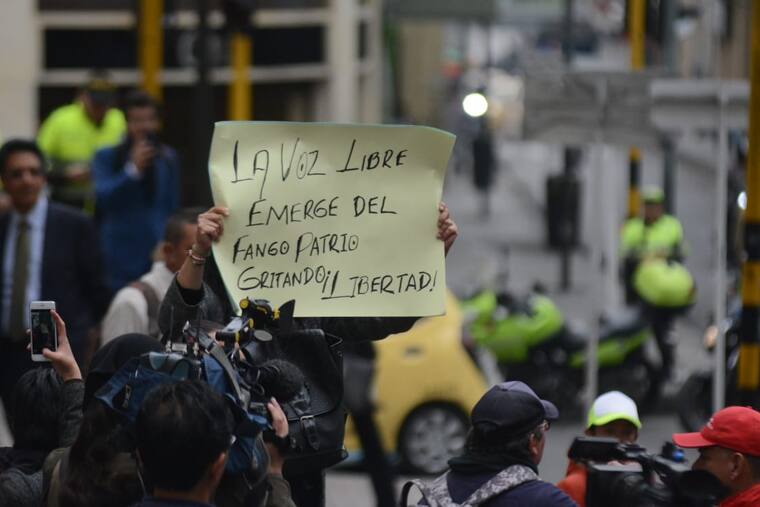 LA VOZ LIBRE
EMERGE DEL
FANGO PATRIO
GRITANDO ¡LIBERTAD!